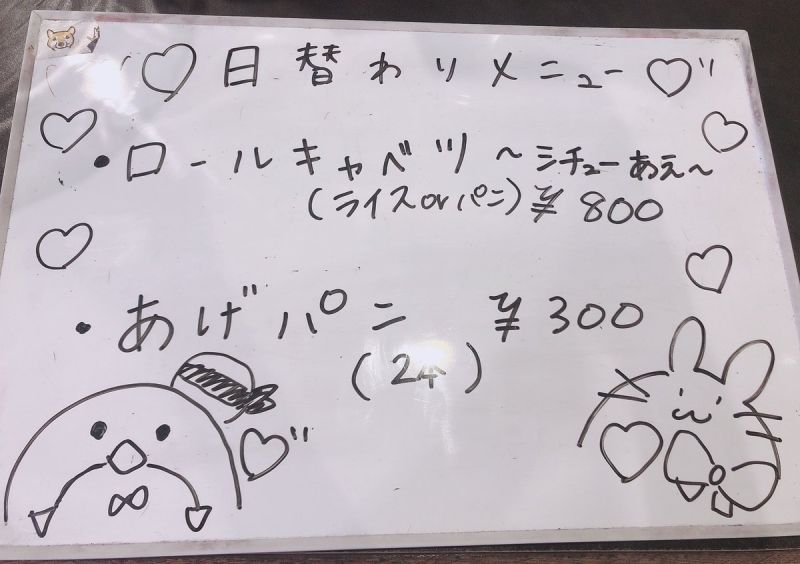 日替わりメニュー
・ロールキャベツ～シチューあえ～
(ライスorパン) ¥800
・あげパン ¥300
(2ケ)